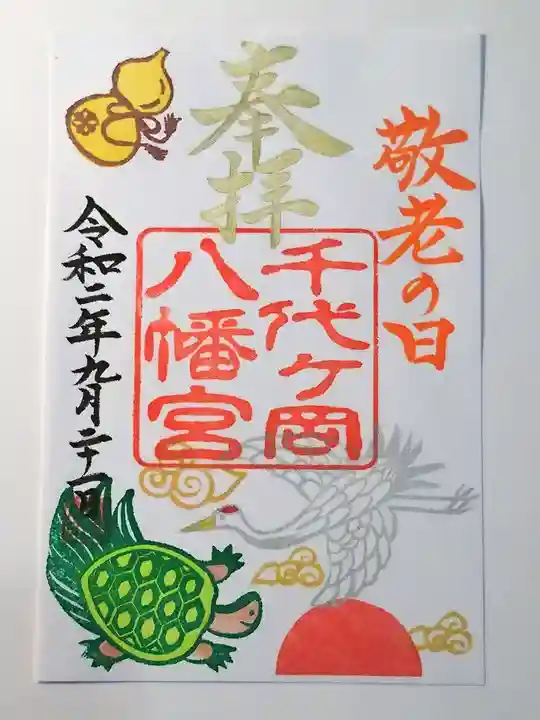 敬老の日
奉拝
千代ケ岡
八幡宮
令和二年九月二十一日